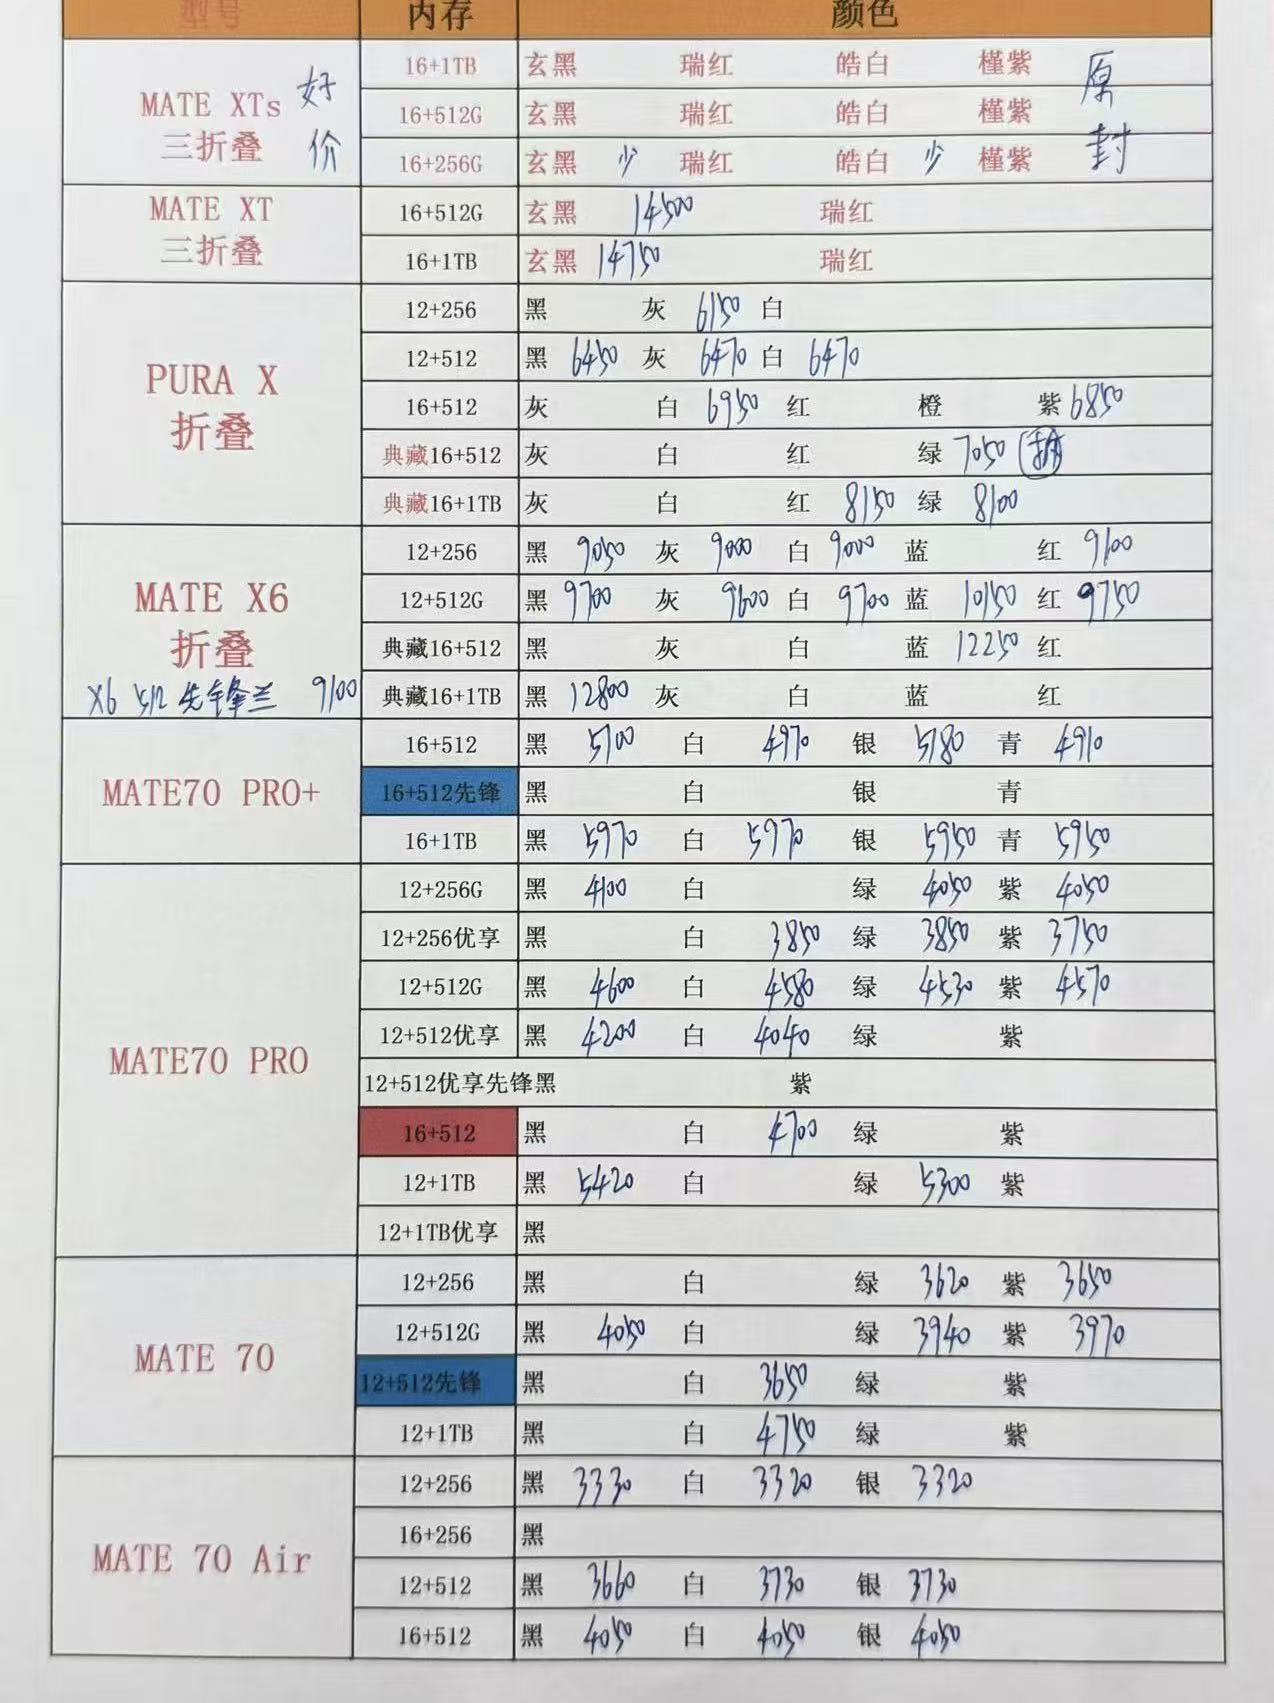 型号 内存 颜色
MATE XTs 三折叠 好价
16+1TB 玄黑 瑞红 皓白 槿紫 原
16+512G 玄黑 瑞红 皓白 槿紫
16+256G 玄黑 少 瑞红 皓白 少 槿紫 封
MATE XT 三折叠
16+512G 玄黑 14500 瑞红
16+1TB 玄黑 14750 瑞红
PURA X 折叠
12+256 黑 灰 6150 白
12+512 黑 6450 灰 6470 白 6470
16+512 灰 白 6950 红 橙 紫 6850
典藏16+512 灰 白 红 绿 7050
典藏16+1TB 灰 白 红 8150 绿 8100
MATE X6 折叠
X6 512 先锋兰 9100
12+256 黑 9050 灰 9000 白 9000 蓝 红 9100
12+512G 黑 9700 灰 9600 白 9700 蓝 10150 红 9750
典藏16+512 黑 灰 白 蓝 12250 红
典藏16+1TB 黑 12800 灰 白 蓝 红
MATE70 PRO+
16+512 黑 5100 白 4970 银 5180 青 4910
16+512先锋 黑 白 银 青
16+1TB 黑 5970 白 5970 银 5950 青 5950
MATE70 PRO
12+256G 黑 4100 白 绿 4050 紫 4050
12+256优享 黑 白 3850 绿 3850 紫 3750
12+512G 黑 4600 白 4580 绿 4530 紫 4570
12+512优享 黑 4200 白 4040 绿 紫
12+512优享先锋黑 紫
16+512 黑 白 4700 绿 紫
12+1TB 黑 5420 白 绿 5300 紫
12+1TB优享 黑
MATE 70
12+256 黑 白 绿 3620 紫 3650
12+512G 黑 4050 白 绿 3940 紫 3970
12+512先锋 黑 白 3650 绿 紫
12+1TB 黑 白 4750 绿 紫
MATE 70 Air
12+256 黑 3330 白 3320 银 3320
16+256 黑
12+512 黑 3660 白 3730 银 3730
16+512 黑 4050 白 4050 银 4050